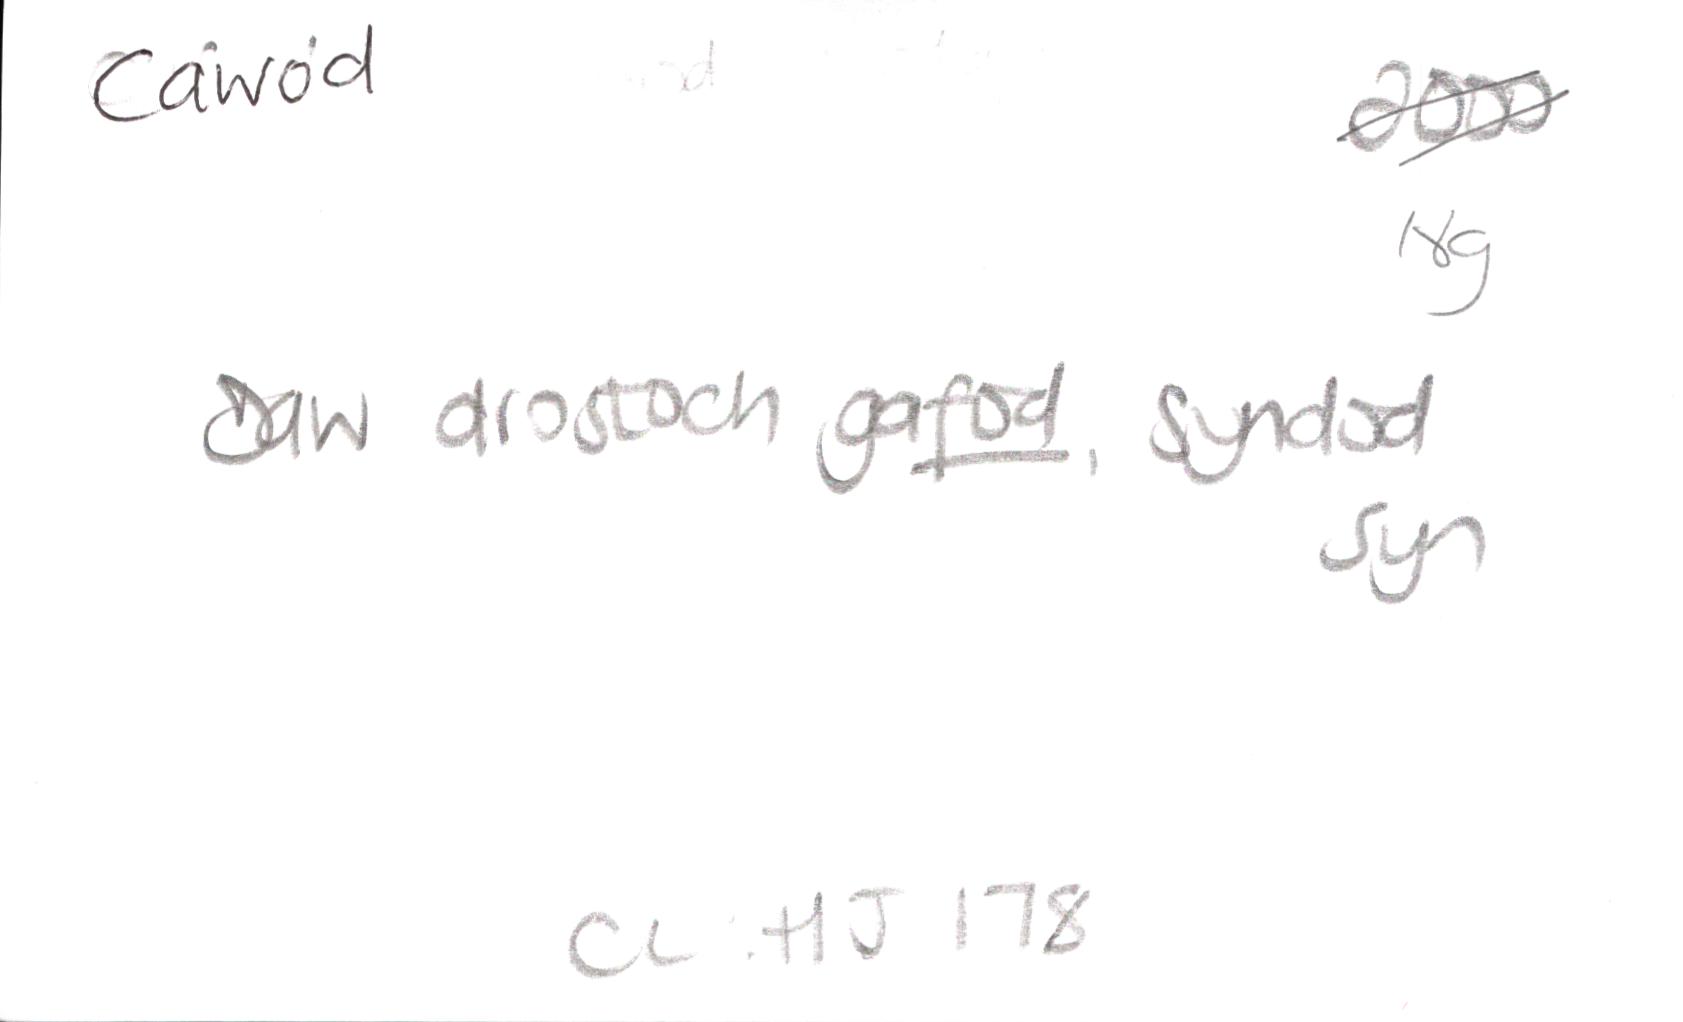 cawod
2000
18g
Daw drostoch gafod, syndod
syn
CL : HJ 178